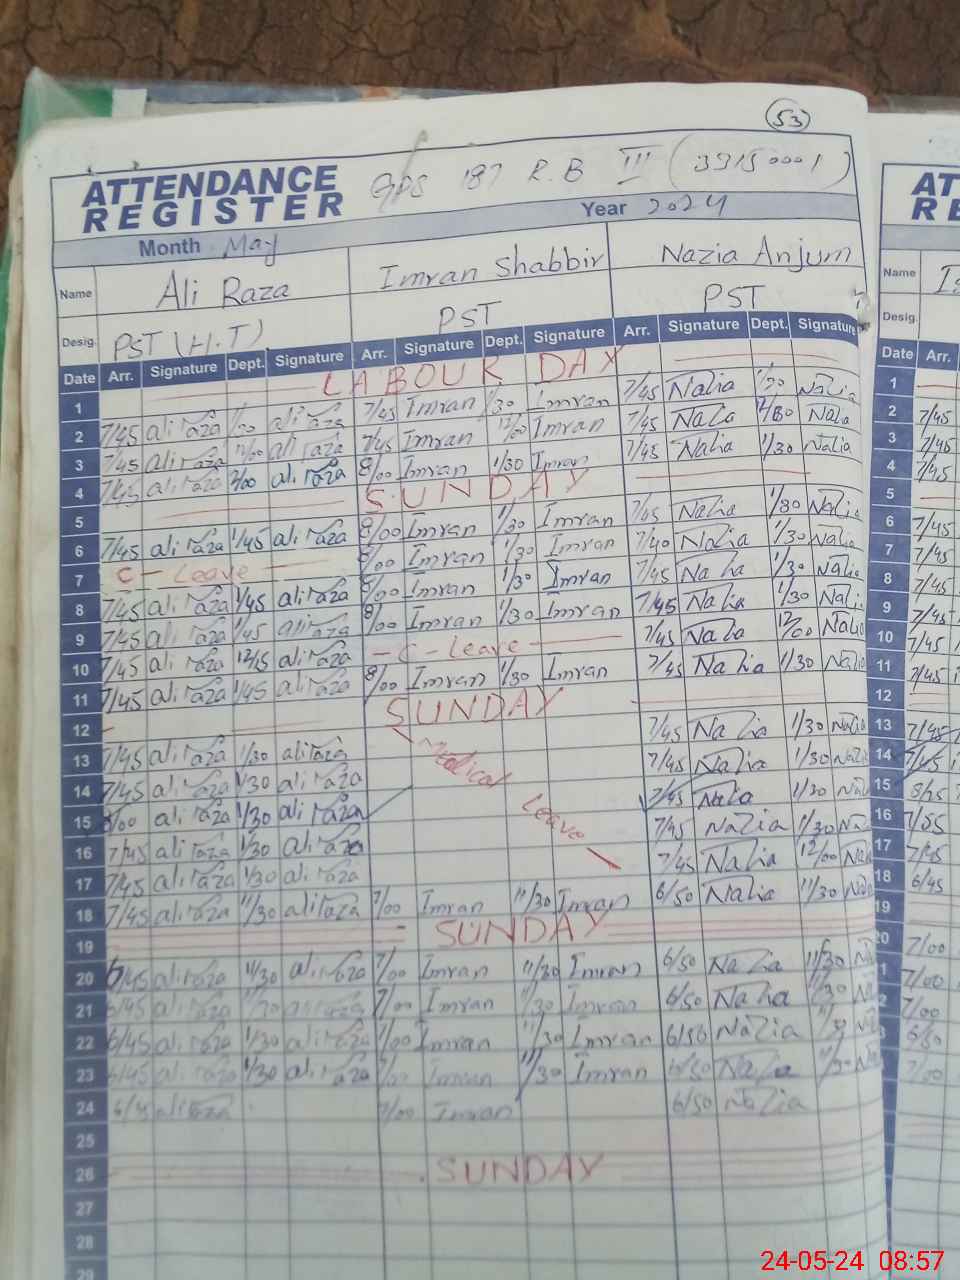 53
ATTENDANCE REGISTER GPS 187 R.B III (33150001)
Year 2024
Month May
Name Ali Raza Imran Shabbir Nazia Anjum
Desig. PST (H.T) PST PST
Date Arr. Signature Dept. Signature Arr. Signature Dept. Signature Arr. Signature Dept. Signature
1 LABOUR DAY
2 7/45 ali raza ali raza 7/45 Imran 1/30 Imran 7/45 Nazia 1/30 Nazia
3 7/45 ali raza 12/00 ali raza 7/45 Imran 12/00 Imran 7/45 Nazia Nazia
4 7/45 ali raza ali raza 8/00 Imran 1/30 Imran 7/45 Nazia 1/30 Nazia
5 SUNDAY
6 7/45 ali raza 1/45 ali raza 8/00 Imran 1/30 Imran Nazia 1/30 Nazia
7 C - Leave 8/00 Imran 1/30 Imran 7/40 Nazia 1/30 Nazia
8 7/45 ali raza 1/45 ali raza 8/00 Imran 1/30 Imran 7/45 Nazia 1/30 Nazia
9 7/45 ali raza 1/45 ali raza 8/00 Imran 1/30 Imran 7/45 Nazia 1/30 Nazia
10 7/45 ali raza 12/15 ali raza - C - Leave 7/45 Nazia 12/00 Nazia
11 7/45 ali raza 1/45 ali raza 8/00 Imran 1/30 Imran 7/45 Nazia 1/30 Nazia
12 SUNDAY
13 7/45 ali raza 1/30 ali raza Medical Leave 7/45 Nazia 1/30 Nazia
14 7/45 ali raza 1/30 ali raza 7/45 Nazia 1/30 Nazia
15 8/00 ali raza 1/30 ali raza 7/45 Nazia 1/30
16 7/45 ali raza 1/30 ali raza 7/45 Nazia 1/30
17 7/45 ali raza 1/30 ali raza 7/45 Nazia 12/00
18 7/45 ali raza 11/30 ali raza 7/00 Imran 11/30 Imran 6/50 Nazia 11/30
19 SUNDAY
20 6/45 ali raza 11/30 ali raza 7/00 Imran 11/30 Imran 6/50 Nazia 11/30
21 6/45 ali raza 11/30 ali raza 7/00 Imran 11/30 Imran 6/50 Nazia 11/30
22 6/45 ali raza 11/30 ali raza 7/00 Imran 11/30 Imran 6/50 Nazia 11/30
23 6/45 ali raza 11/30 ali raza 7/00 Imran 11/30 Imran 6/50 Nazia 11/30
24 6/45 ali raza 7/00 Imran 6/50 Nazia
25
26 SUNDAY
27
28
29
AT
RE
Name
Desig.
Date Arr.
1
2 7/45
3 7/45
4 7/45
5
6 7/45
7 7/45
8 7/45
9 7/45
10 7/45
11 7/45
12
13 7/45
14 7/45
15 8/15
16 7/55
17 7/45
18 6/45
19
20 7/00
7/00
7/00
6/50
7/00
24-05-24 08:57